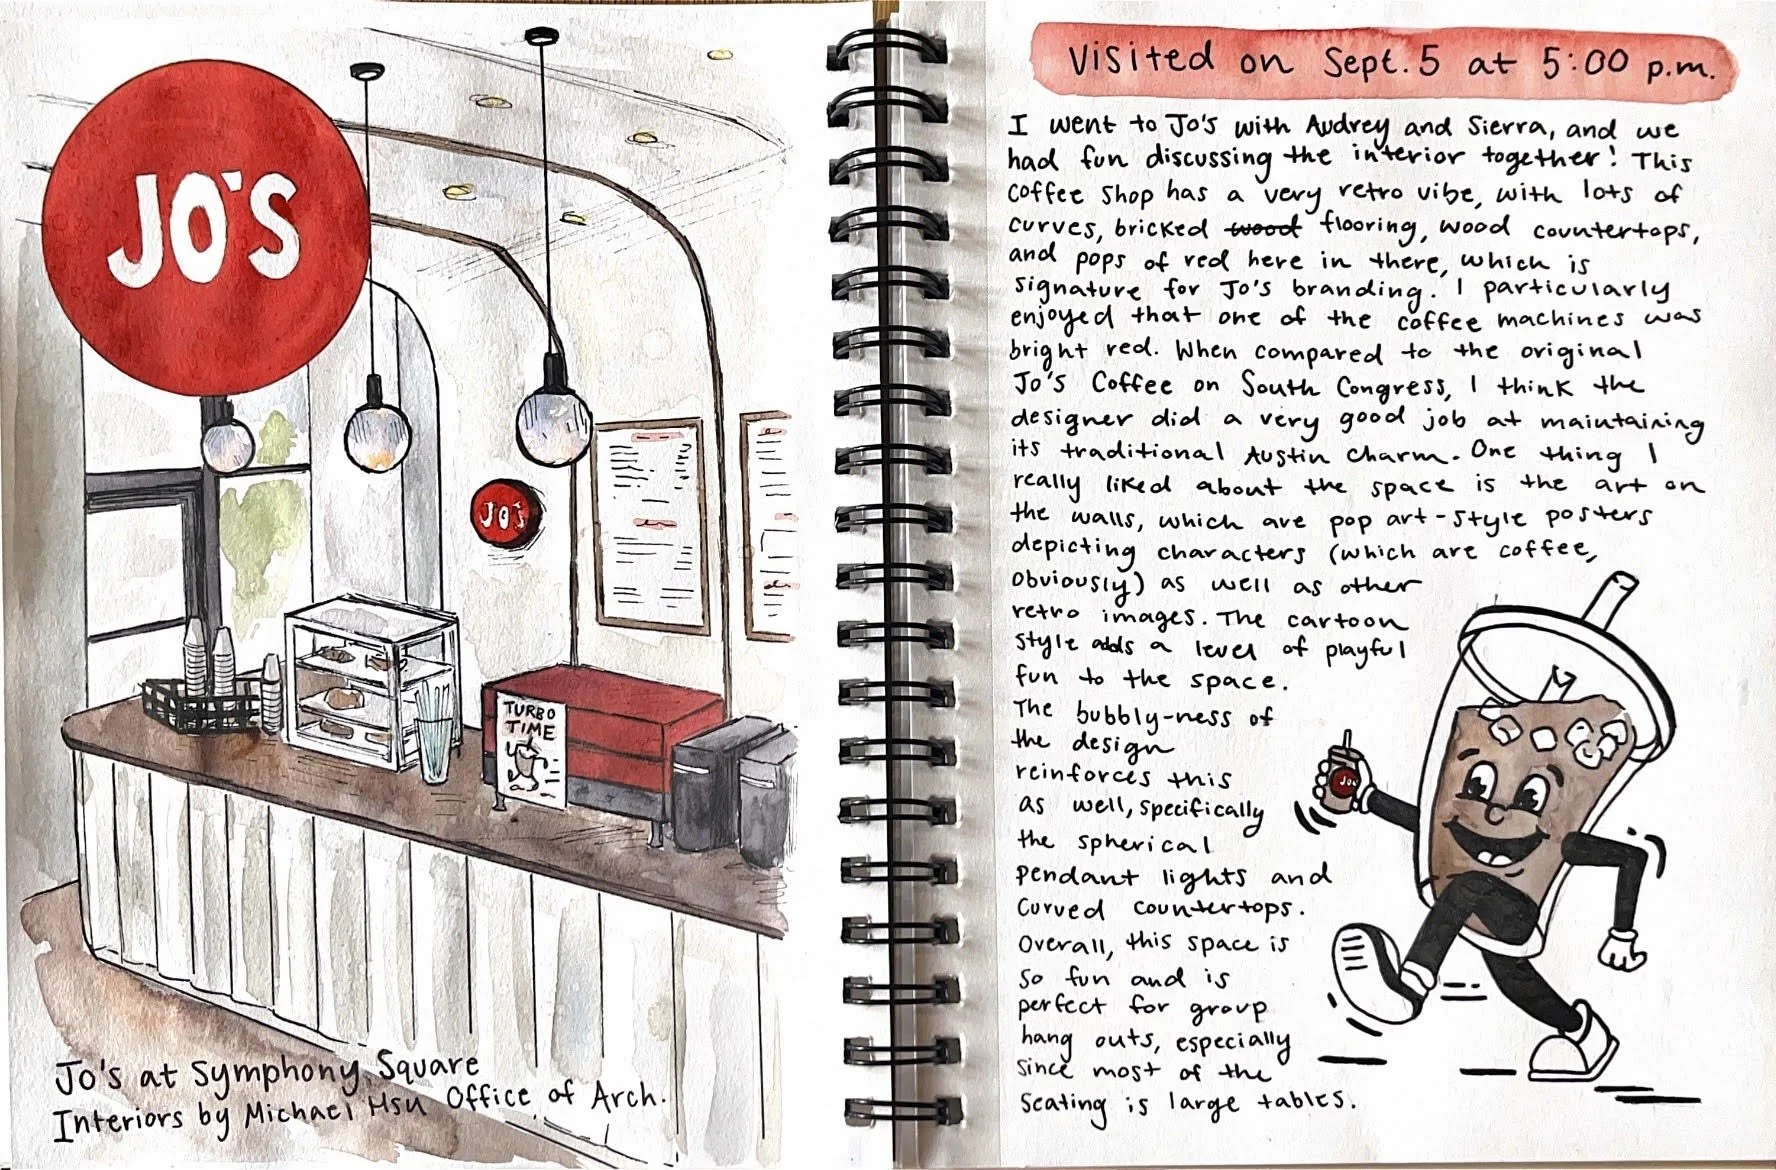 JO'S
JO'S
TURBO
TIME
Jo's at Symphony Square
Interiors by Michael Hsu Office of Arch.
Visited on Sept. 5 at 5:00 p.m.
I went to Jo's with Audrey and Sierra, and we
had fun discussing the interior together! This
coffee shop has a very retro vibe, with lots of
curves, bricked wood flooring, wood countertops,
and pops of red here in there, which is
signature for Jo's branding. I particularly
enjoyed that one of the coffee machines was
bright red. When compared to the original
Jo's Coffee on South Congress, I think the
designer did a very good job at maintaining
its traditional Austin charm. One thing I
really liked about the space is the art on
the walls, which are pop art-style posters
depicting characters (which are coffee,
obviously) as well as other
retro images. The cartoon
style adds a level of playful
fun to the space.
The bubbly-ness of
the design
reinforces this
as well, specifically
the spherical
pendant lights and
curved countertops.
Overall, this space is
so fun and is
perfect for group
hang outs, especially
since most of the
seating is large tables.
JO'S